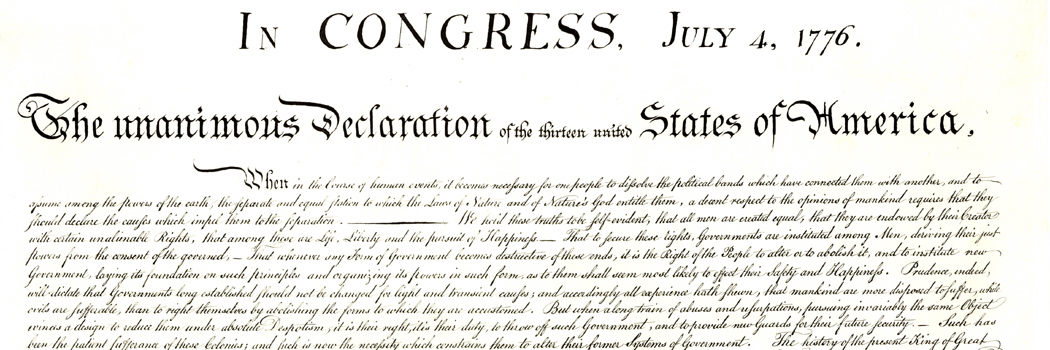 In CONGRESS, July 4, 1776.
The unanimous Declaration of the thirteen united States of America,
When in the Course of human events, it becomes necessary for one people to dissolve the political bands which have connected them with another, and to
assume among the powers of the earth, the separate and equal station to which the Laws of Nature and of Nature's God entitle them, a decent respect to the opinions of mankind requires that they
should declare the causes which impel them to the separation. — We hold these truths to be self-evident, that all men are created equal, that they are endowed by their Creator
with certain unalienable Rights, that among these are Life, Liberty and the pursuit of Happiness. — That to secure these rights, Governments are instituted among Men, deriving their just
powers from the consent of the governed, — That whenever any Form of Government becomes destructive of these ends, it is the Right of the People to alter or to abolish it, and to institute new
Government, laying its foundation on such principles and organizing its powers in such form, as to them shall seem most likely to effect their Safety and Happiness. Prudence, indeed,
will dictate that Governments long established should not be changed for light and transient causes; and accordingly all experience hath shewn, that mankind are more disposed to suffer, while
evils are sufferable, than to right themselves by abolishing the forms to which they are accustomed. But when a long train of abuses and usurpations, pursuing invariably the same Object
evinces a design to reduce them under absolute Despotism, it is their right, it is their duty, to throw off such Government, and to provide new Guards for their future security. — Such has
been the patient sufferance of these Colonies; and such is now the necessity which constrains them to alter their former Systems of Government. The history of the present King of Great